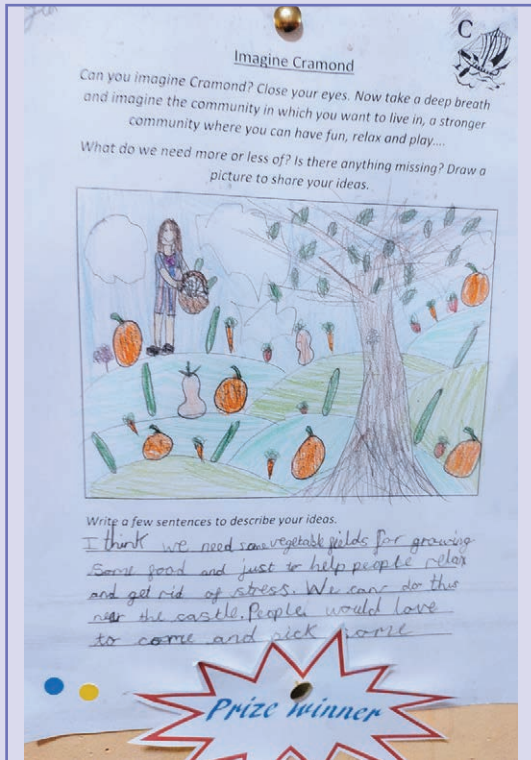 C
Imagine Cramond
Can you imagine Cramond? Close your eyes. Now take a deep breath
and imagine the community in which you want to live in, a stronger
community where you can have fun, relax and play....
What do we need more or less of? Is there anything missing? Draw a
picture to share your ideas.
Write a few sentences to describe your ideas.
I think we need some vegetable fields for growing
some food and just to help people relax
and get rid of stress. We can do this
near the castle. People would love
to come and pick some
Prize winner